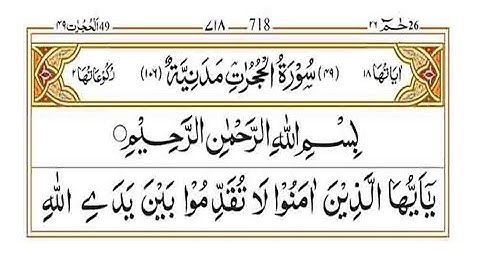 حٰمٓ 26 ٢٦ 718 ٧١٨ الحُجُرٰت 49 ٤٩
اٰيَاتُهَا ١٨ (٤٩) سُوْرَةُ الْحُجُرٰتِ مَدَنِيَّةٌ (١٠٦) رُكُوْعَاتُهَا ٢
بِسْمِ اللهِ الرَّحْمٰنِ الرَّحِيْمِ
يٰۤاَيُّهَا الَّذِيْنَ اٰمَنُوْا لَا تُقَدِّمُوْا بَيْنَ يَدَيِ اللهِ